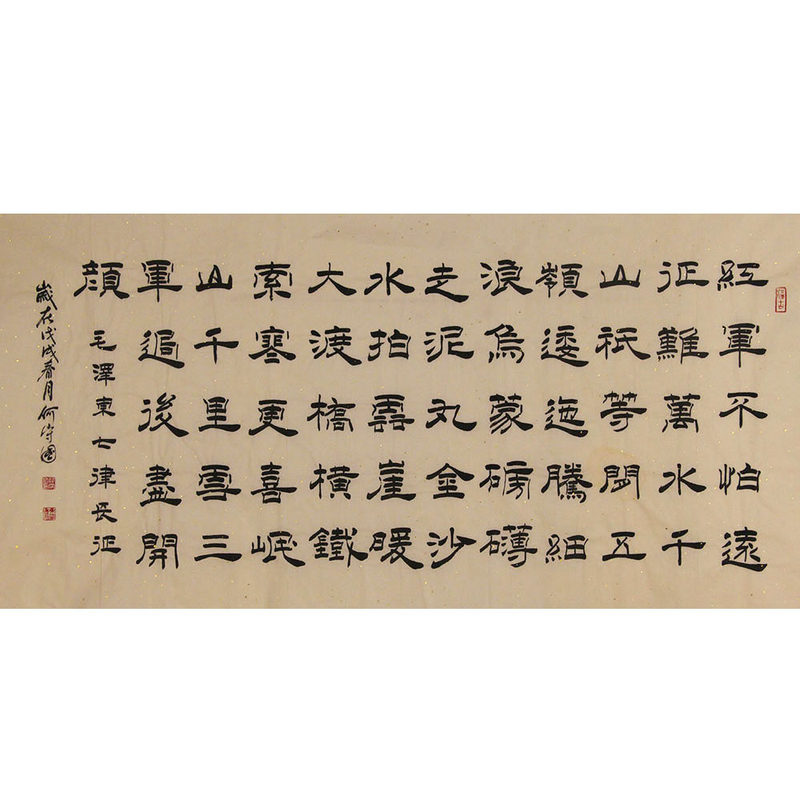 紅軍不怕遠
征難萬水千
山祇等閑五
嶺逶迤騰細
浪烏蒙磅礴
走泥丸金沙
水拍雲崖暖
大渡橋橫鐵
索寒更喜岷
山千里雪三
軍過後盡開
顔
毛澤東七律長征
歲在戊戌春月何國